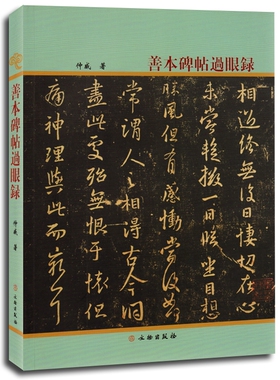 仲威 著
善本碑帖過眼録
相過終無復日悽切在心
未嘗暫掇一日臨坐目想
勝風但有感慟當復如何
常謂人之相得古今洞
盡此處殆無恨于懷但
痛神理與此而窮耳
文物出版社
善本碑帖過眼録
仲威 著
文物出版社